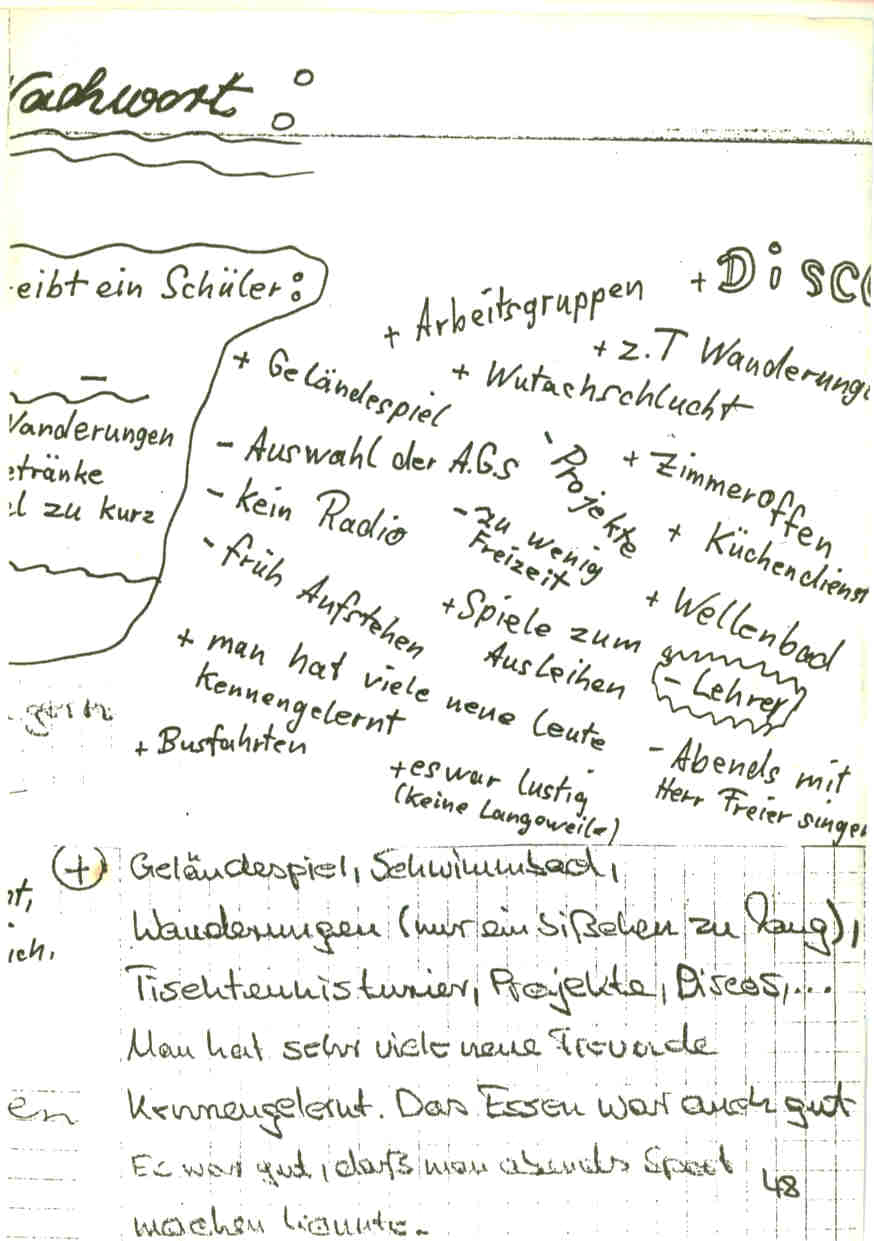 achwort :
eibt ein Schüler :
–
Wanderungen
etränke
el zu kurz
+ Disco
+ Arbeitsgruppen
+ z.T Wanderung
+ Geländespiel
+ Wutachschlucht
- Auswahl der A.G.s
- Projekte
+ Zimmer offen
- kein Radio
- zu wenig
Freizeit
+ Küchendienst
- früh Aufstehen
+ Spiele zum
Ausleihen
+ Wellenbad
- Lehrer
+ man hat viele neue Leute
kennengelernt
+ Busfahrten
- Abends mit
Herr Freier singen
+ es war lustig
(keine Langeweile)
gern
nt,
ich.
en
(+) Geländespiel, Schwimmbad,
Wanderungen (nur ein bißchen zu lang),
Tischtennisturnier, Projekte, Discos,...
Man hat sehr viele neue Freunde
kennengelernt. Das Essen war auch gut
Es war gut, daß man abends Sport
machen konnte.
48